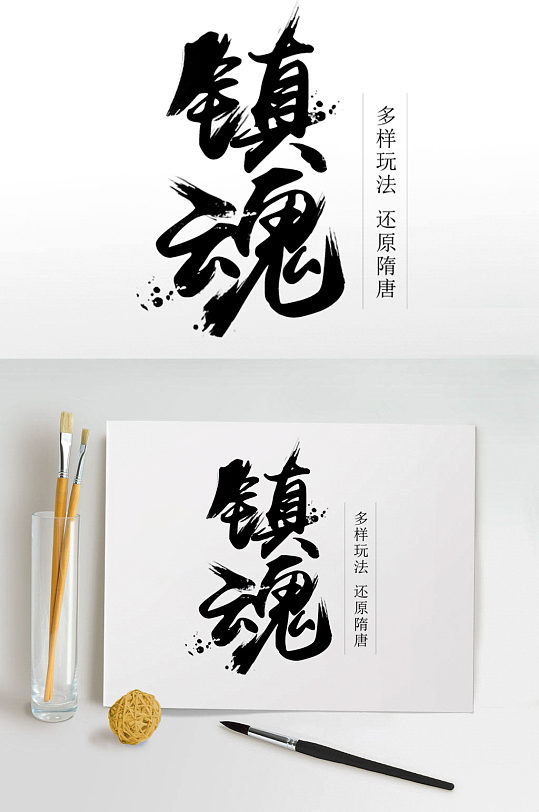 镇魂
多样玩法 还原隋唐
镇魂
多样玩法 还原隋唐